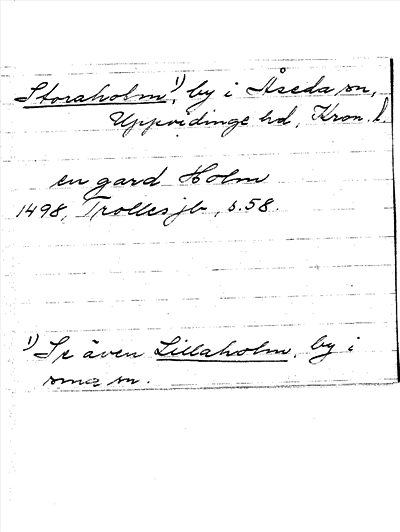 Storaholm¹⁾, by i Åseda sn,
Uppvidinge hd, Kron. l.
en gard Holm
1498, Trolles jb, s. 58.
¹⁾ Se även Lillaholm, by i
sma sn.